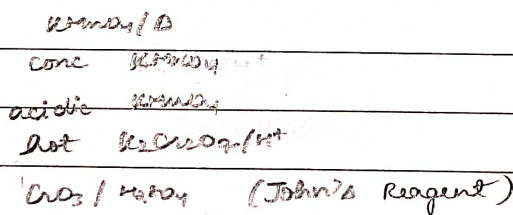 KMnO4/Δ
conc KMnO4
acidic KMnO4
hot K2Cr2O7/H+
CrO3 / H2SO4 (John's Reagent)